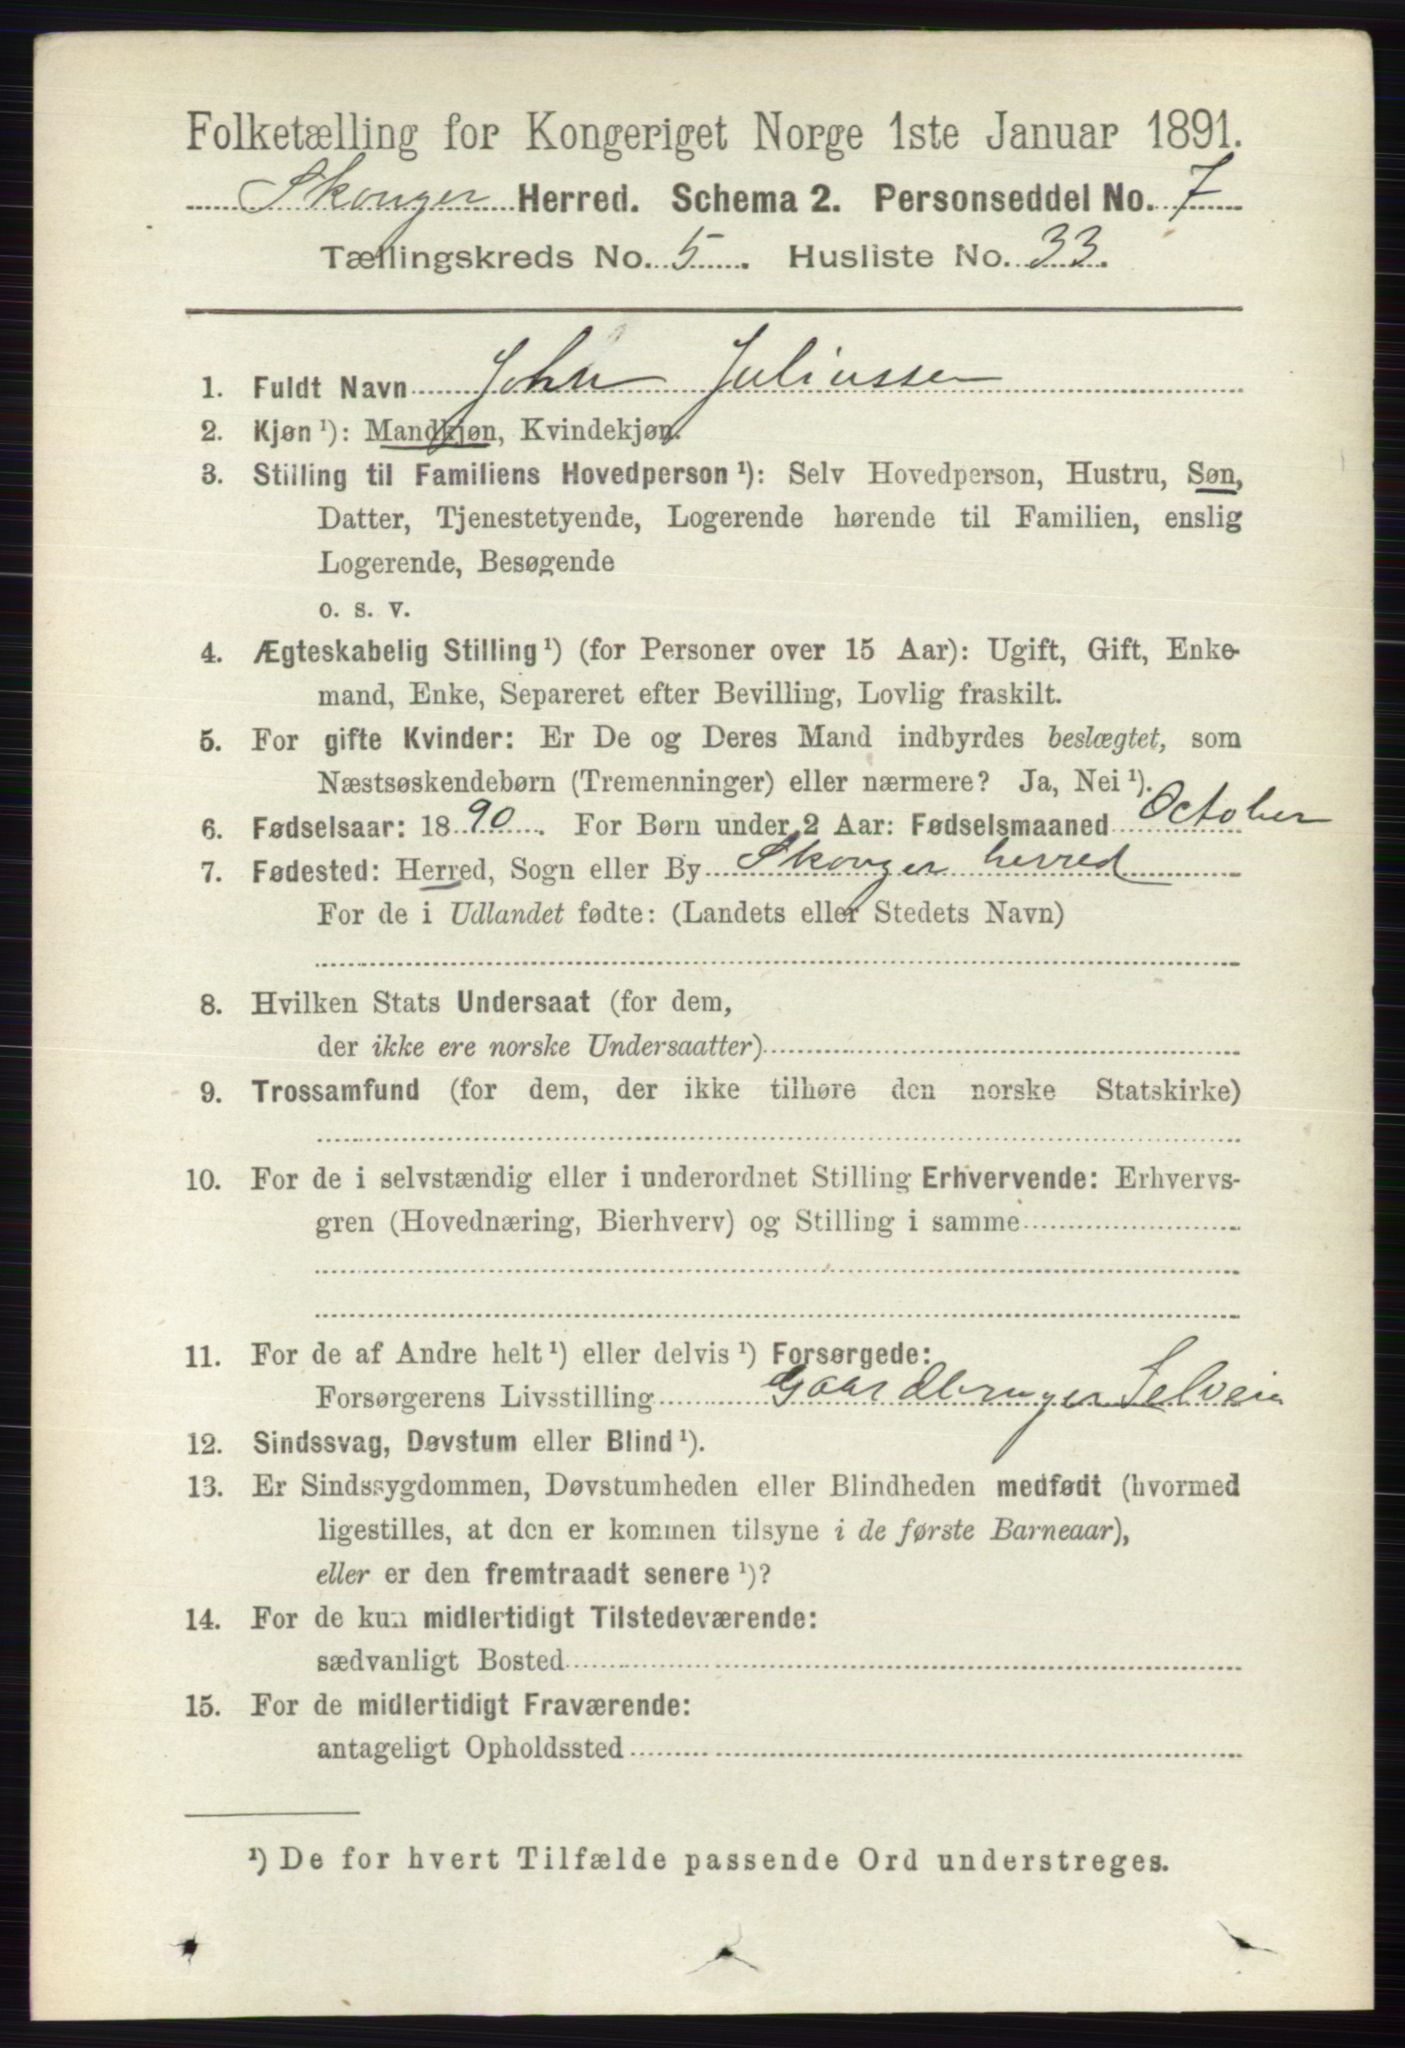 Folketælling for Kongeriget Norge 1ste Januar 1891.
Skouger Herred. Schema 2. Personseddel No. 7
Tællingskreds No. 5. Husliste No. 33.
1. Fuldt Navn John Juliussen
2. Kjøn ¹): Mandkjøn, Kvindekjøn.
3. Stilling til Familiens Hovedperson ¹): Selv Hovedperson, Hustru, Søn,
Datter, Tjenestetyende, Logerende hørende til Familien, enslig
Logerende, Besøgende
o. s. v.
4. Ægteskabelig Stilling ¹) (for Personer over 15 Aar): Ugift, Gift, Enke-
mand, Enke, Separeret efter Bevilling, Lovlig fraskilt.
5. For gifte Kvinder: Er De og Deres Mand indbyrdes beslægtet, som
Næstsøskendebørn (Tremenninger) eller nærmere? Ja, Nei ¹).
6. Fødselsaar: 1890. For Børn under 2 Aar: Fødselsmaaned October
7. Fødested: Herred, Sogn eller By Skouger herred
For de i Udlandet fødte: (Landets eller Stedets Navn)
8. Hvilken Stats Undersaat (for dem,
der ikke ere norske Undersaatter)
9. Trossamfund (for dem, der ikke tilhøre den norske Statskirke)
10. For de i selvstændig eller i underordnet Stilling Erhvervende: Erhvervs-
gren (Hovednæring, Bierhverv) og Stilling i samme
11. For de af Andre helt ¹) eller delvis ¹) Forsørgede:
Forsørgerens Livsstilling Gaardbruger Selveier
12. Sindssvag, Døvstum eller Blind ¹).
13. Er Sindssygdommen, Døvstumheden eller Blindheden medfødt (hvormed
ligestilles, at den er kommen tilsyne i de første Barneaar),
eller er den fremtraadt senere ¹)?
14. For de kun midlertidigt Tilstedeværende:
sædvanligt Bosted
15. For de midlertidigt Fraværende:
antageligt Opholdssted
¹) De for hvert Tilfælde passende Ord understreges.